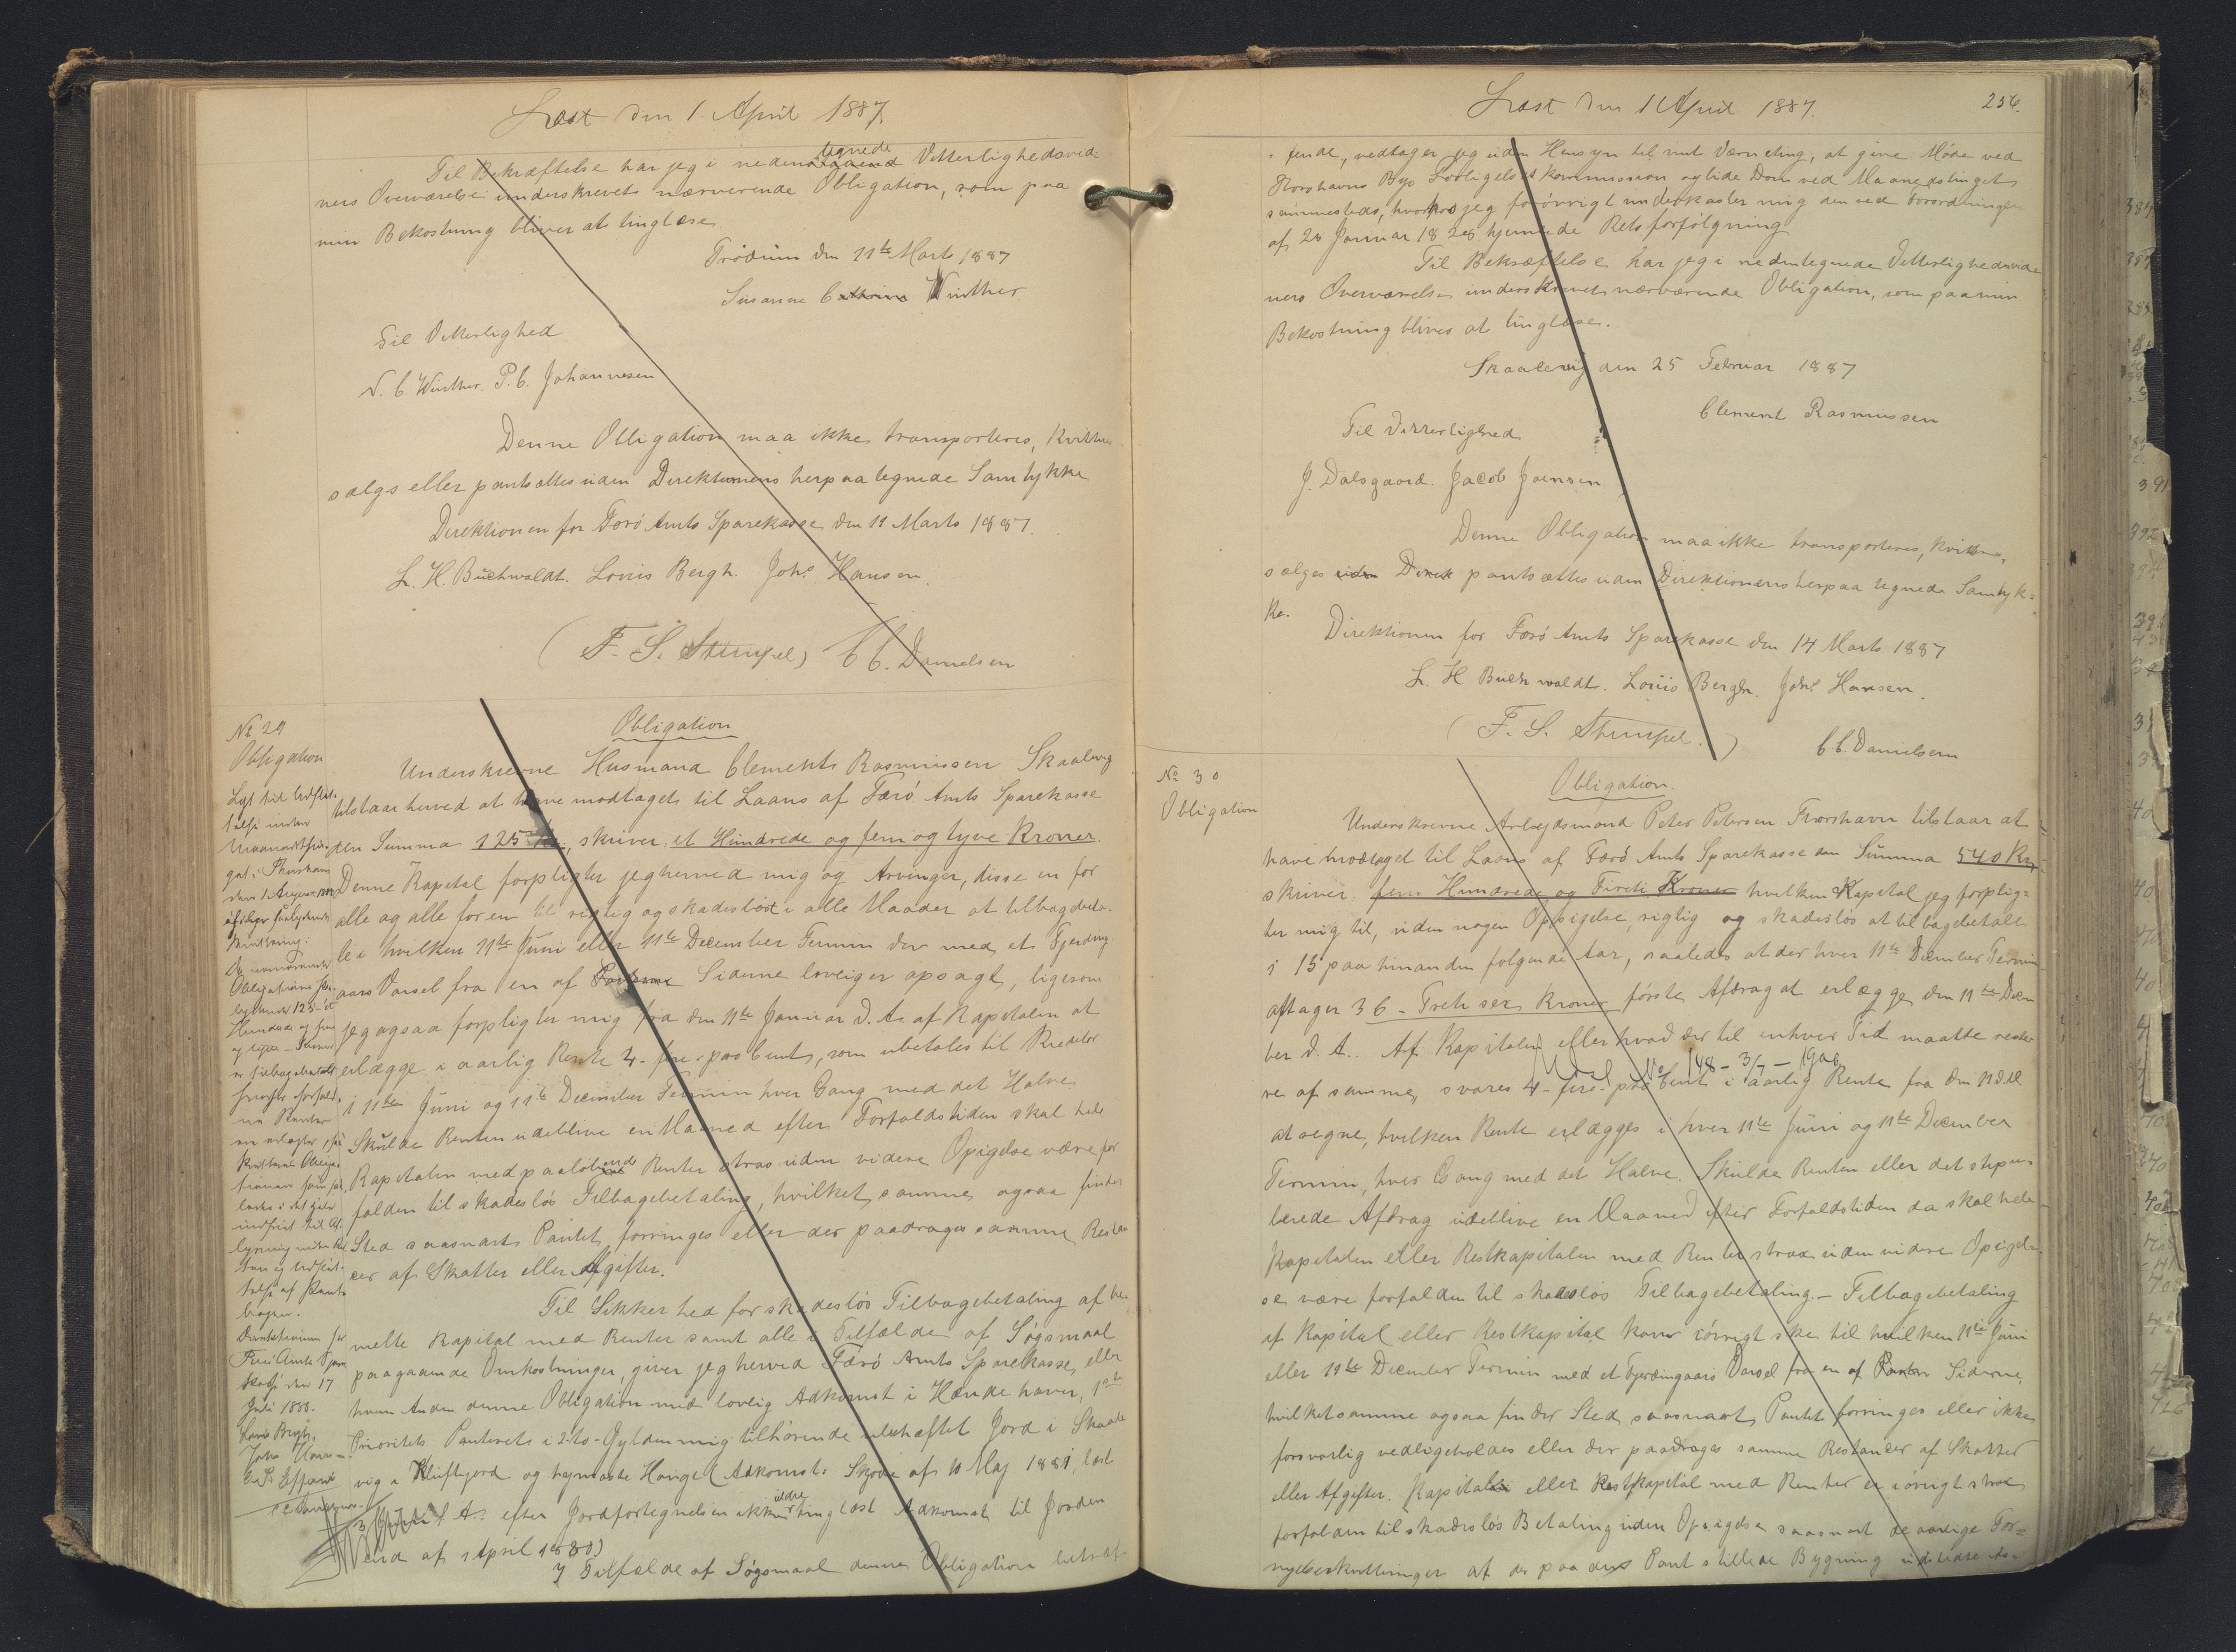 Læst den 1 April 1887.
Til Bekræftelse har jeg i nedentegnede Vitterlighedsvid-
ners Overværelse underskrevet nærværende Obligation, som paa
min Bekostning bliver at tinglæse.
Trödum den 11te Marts 1887
Susanne Cathrine Winther
Til Vitterlighed
N. C. Winther. P. C. Johannesen
Denne Obligation maa ikke transporteres, kvitteres
sælgs eller pantsættes uden Direktionens herpaa tegnede Samtykke
Direktionen for Færö Amts Sparekasse den 11 Marts 1887.
L. H. Buchwaldt. Louis Bergh. Johs Hansen.
(F. S. Stempel) C C. Danielsen
No 29
Obligation
Lyst til Udslet-
telse inden
gat i Thorshavn
Kvittering:
Da nærværende
Obligations
lydende 125 - et
Hundrede og fem
og tyve - Kroner
er tilbagebetalt
no Renter
ere erlagte, saa
kvitteres Obliga-
tionen som
indfriet til Af-
lysning
telse af Pante-
bogen.
Direktionen for
Færö Amts Spare-
kasse den 17
Juli 1888.
Louis Bergh.
Johs Hansen
Obligation
Underskrevne Husmand Clements Rasmussen Skaalevig
tilstaar herved at have modtaget til Laans af Færö Amts Sparekasse
den Summa 125 Kr, skriver et Hundrede og fem og tyve Kroner.
Denne Kapital forpligter jeg herved mig og Arvinger, disse en for
alle og alle for en til rigtig og skadeslöst i alle Maader at tilbagebeta-
le i hvilken 11te Juni eller 11te December Termin der med et Fjerding-
aars Varsel fra en af Siderne loveiger opsagt, ligesom
jeg ogsaa forpligter mig fra den 11te Januar d. A. af Kapitalen at
erlægge i aarlig Rente 4 - fire - pro Cent, som ubetales til Kreditor
i 11te Juni og 11te December Termin hver Gang med det Halve
Skulde Renten udeblive en Maaned efter Forfaldstiden skal hele
Kapitalen med paalöbende Renter strax uden videre Opigelse være for
falden til skadeslös Tilbagebetaling, hvilket samme ogsaa finder
Sted saasnart Pantet forringes eller der paadrages samme Restan
cer af Skatter eller Afgifter.
Til Sikkerhed for skadeslös Tilbagebetaling af be-
melte Kapital med Renter samt alle i Tilfælde af Sögsmaal
paagaaende Omkostninger, giver jeg herved Færö Amts Sparekasse, eller
hvem Anden denne Obligation med lovlig Adkomst i Hænde haver, 1ste
Prioritets Panteret i 2-to-Gylden mig tilhörende ubehæftet Jord i Skaale
vig i Kluftsjord og höjmaste Hauge (Adkomst: Sköde af 10 Maj 1881, læst
3 Juni s. A. efter Jordfortegnelsen ikke ældre tinglæst Adkomst til Jorden
end af 1 April 1880)
I Tilfælde af Sögsmaal denne Obligation betræf-
Læst den 1 April 1887.
256.
fende, vedtager jeg uden Hensyn til mit Værneting, at give Möde ved
Thorshavns Byes Forligelses Kommission og lide Dom ved Maanedstinget
sammesteds, hvorhos jeg forövrigt underkaster mig den ved Forordningen
af 28 Januar 1828 hjemlede Retsforfölgning
Til Bekræftelse har jeg i nedentegnede Vitterlighedsvid
ners Overværelse underskrevet nærværende Obligation, som paa min
Bekostning bliver at tinglæse.
Skaalevig den 25 Februar 1887
Clement Rasmussen
Til Vitterlighed
J. Dalsgaard. Jacob Joensen
Denne Obligation maa ikke transporteres, kvitteres,
sælges uden Direk pantsættes uden Direktionens herpaa tegnede Samtyk-
ke.
Direktionen for Færö Amts Sparekasse den 14 Marts 1887
L. H Buchwaldt. Louis Bergh. Johs Hansen.
(F. S. Stempel.) C C. Danielsen
No 30
Obligation
Obligation.
Underskrevne Arbejdsmand Peter Petersen Thorshavn tilstaar at
have modtaget til Laans af Færö Amts Sparekasse den Summa 540 Kr
skriver. fem Hundrede og Firti Kroner hvilken Kapital jeg forplig-
ter mig til, uden nogen Opsigelse, rigtig og skadeslös at tilbagebetale
i 15 paa hinanden fölgende Aar, saaledes at der hver 11te December Termin
aftager 36 - Treti sex Kroner förste Afdrag at erlægge den 11te Decem
ber d. A. Af Kapitalen eller hvad der til enhver Tid maatte reste
Udsl No 148 - 3/7 - 1906
re af samme, svares 4 - fire - pro Cent i aarlig Rente fra den 11 d.M
at regne, hvilken Rente erlægges i hver 11te Juni og 11te December
Termin, hver Gang med det Halve. Skulde Renten eller det stipu-
lerede Afdrag udeblive en Maaned efter Forfaldstiden da skal hele
Kapitalen eller Restkapitalen med Renter strax uden videre Opigel-
se være forfalden til skadeslös Tilbagebetaling. - Tilbagebetaling
af Kapital eller Restkapital kan iövrigt ske til hvilken 11te Juni
eller 11te December Termin med et Fjerdingaars Varsel fra en af Siderne,
hvilket samme ogsaa finder Sted saasnart Pantet forringes eller ikke
forsvarlig vedligeholdes eller der paadrages samme Restancer af Skatter
eller Afgifter. Kapitalen eller Restkapital med Renter er iövrigt strax
forfalden til skadeslös Betaling uden Opsigelse saasnart de aarlige For-
nyelseskvitteringer af der paa den Pant stillede Bygning